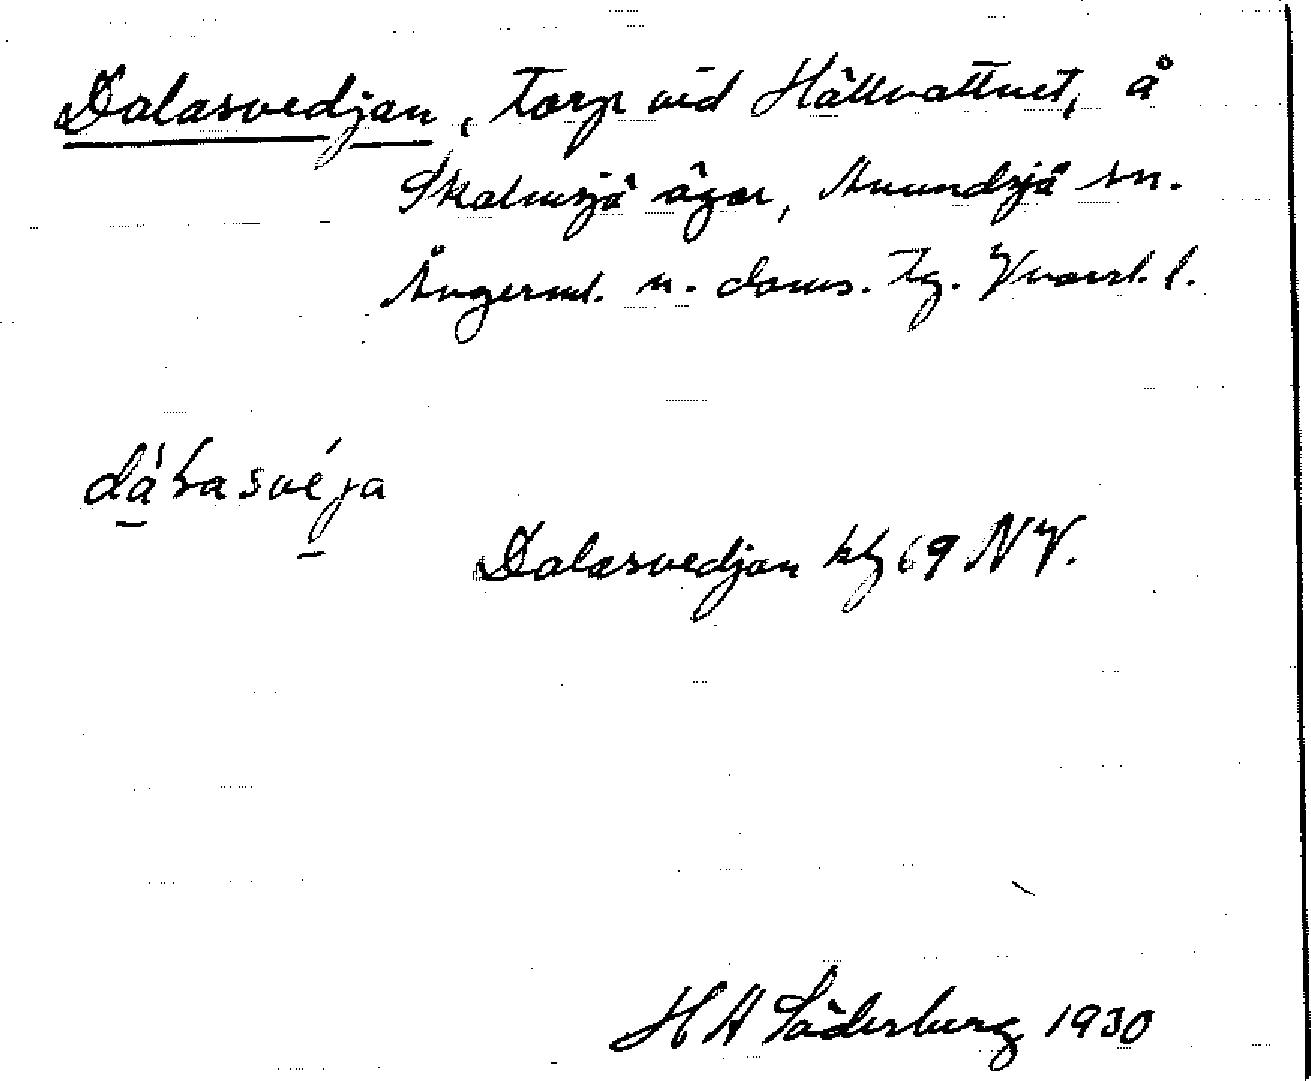 Dalasvedjan, torp vid Hällvattnet, å
Skalmsjö ägor, Anundsjö sn.
Ångerml. n. doms. tg. Vnorrl. l.
dáƚasvéja
Dalasvedjan kbl 69 NV.
H A Söderberg 1930